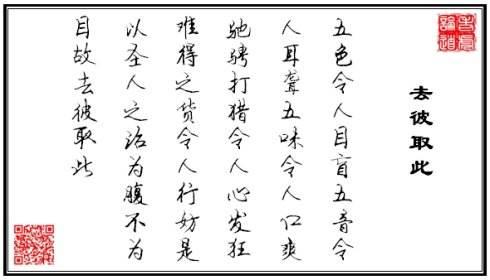 去彼取此
五色令人目盲五音令
人耳聋五味令人口爽
驰骋打猎令人心发狂
难得之货令人行妨是
以圣人之治为腹不为
目故去彼取此